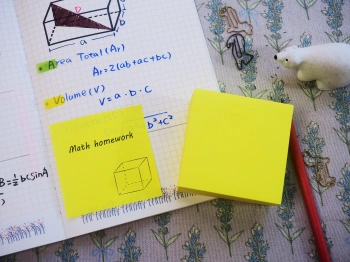 D
b
a
b
Area Total (AT)
AT=2(ab+ac+bc)
Volume (V)
V=a·b·c
b²+c²
Math homework
B=½bc sin A